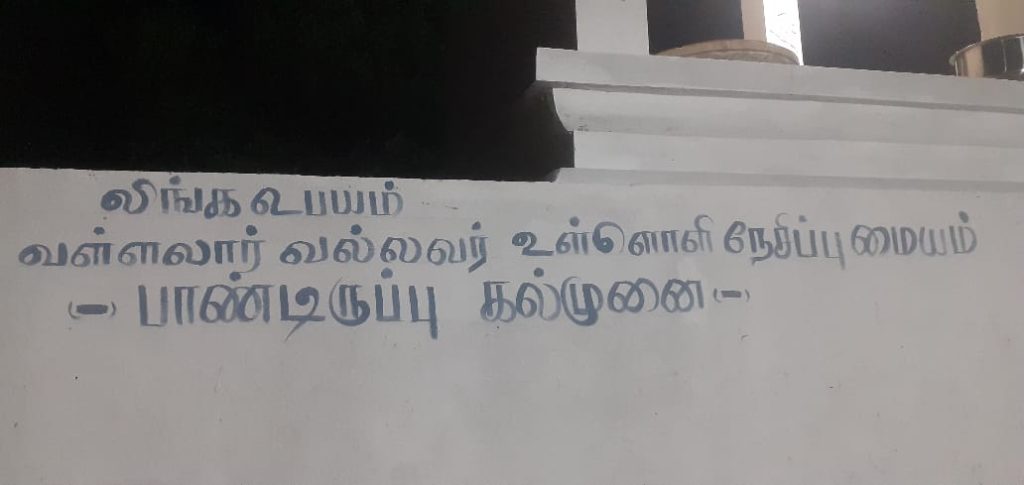 லிங்க உபயம்
வள்ளலார் வல்லவர் உள்ளொளி நேசிப்பு மையம்
(-) பாண்டிருப்பு கல்முனை (-)